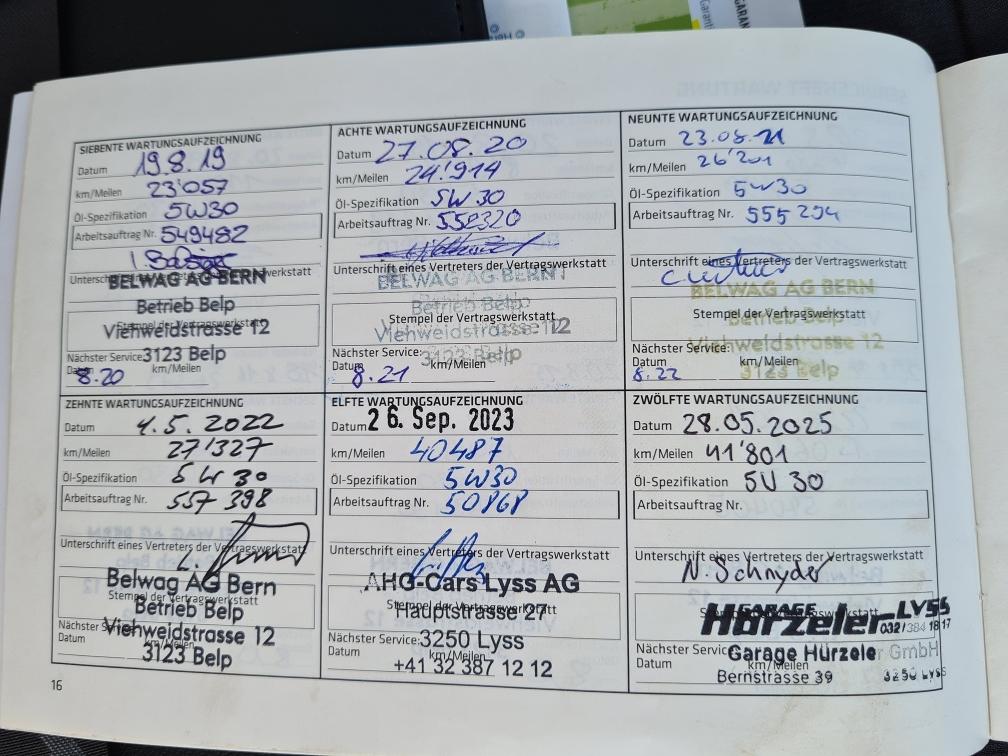 SIEBENTE WARTUNGSAUFZEICHNUNG
Datum 19.8.19
km/Meilen 23'057
Öl-Spezifikation 5W30
Arbeitsauftrag Nr. 549482
Unterschrift eines Vertreters der Vertragswerkstatt
BELWAG AG BERN
Betrieb Belp
Stempel der Vertragswerkstatt
Viehweidstrasse 12
3123 Belp
Nächster Service:
Datum 8.20 km/Meilen
ACHTE WARTUNGSAUFZEICHNUNG
Datum 27.08.20
km/Meilen 24'914
Öl-Spezifikation 5W30
Arbeitsauftrag Nr. 552320
Unterschrift eines Vertreters der Vertragswerkstatt
BELWAG AG BERN
Betrieb Belp
Stempel der Vertragswerkstatt
Viehweidstrasse 12
3123 Belp
Nächster Service:
Datum 8.21 km/Meilen
NEUNTE WARTUNGSAUFZEICHNUNG
Datum 23.08.21
km/Meilen 26'201
Öl-Spezifikation 5W30
Arbeitsauftrag Nr. 555294
Unterschrift eines Vertreters der Vertragswerkstatt
BELWAG AG BERN
Stempel der Vertragswerkstatt
Betrieb Belp
Viehweidstrasse 12
3123 Belp
Nächster Service:
Datum 8.22 km/Meilen
ZEHNTE WARTUNGSAUFZEICHNUNG
Datum 4.5.2022
km/Meilen 27'327
Öl-Spezifikation 5W30
Arbeitsauftrag Nr. 557398
Unterschrift eines Vertreters der Vertragswerkstatt
Belwag AG Bern
Stempel der Vertragswerkstatt
Betrieb Belp
Viehweidstrasse 12
3123 Belp
Nächster Service:
Datum km/Meilen
ELFTE WARTUNGSAUFZEICHNUNG
Datum 26. Sep. 2023
km/Meilen 40487
Öl-Spezifikation 5W30
Arbeitsauftrag Nr. 50868
Unterschrift eines Vertreters der Vertragswerkstatt
AHG-Cars Lyss AG
Stempel der Vertragswerkstatt
Hauptstrasse 27
3250 Lyss
+41 32 387 12 12
Nächster Service:
Datum km/Meilen
ZWÖLFTE WARTUNGSAUFZEICHNUNG
Datum 28.05.2025
km/Meilen 41'801
Öl-Spezifikation 5W30
Arbeitsauftrag Nr.
Unterschrift eines Vertreters der Vertragswerkstatt
N. Schnyder
GARAGE LYSS
Hürzeler 032/384 18 17
Garage Hürzeler GmbH
Bernstrasse 39 3250 Lyss
Nächster Service:
Datum km/Meilen
16